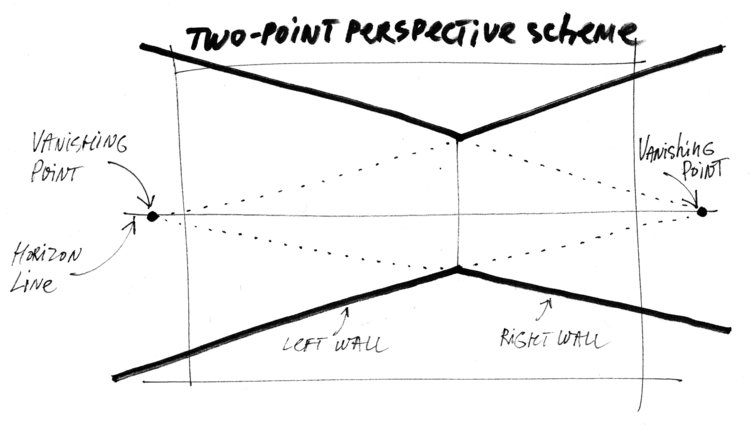 TWO-POINT PERSPECTIVE scheme
VANISHING
POINT
VANIShING
POINT
HORIZON
LINE
LEFT WALL
RIGHT WALL